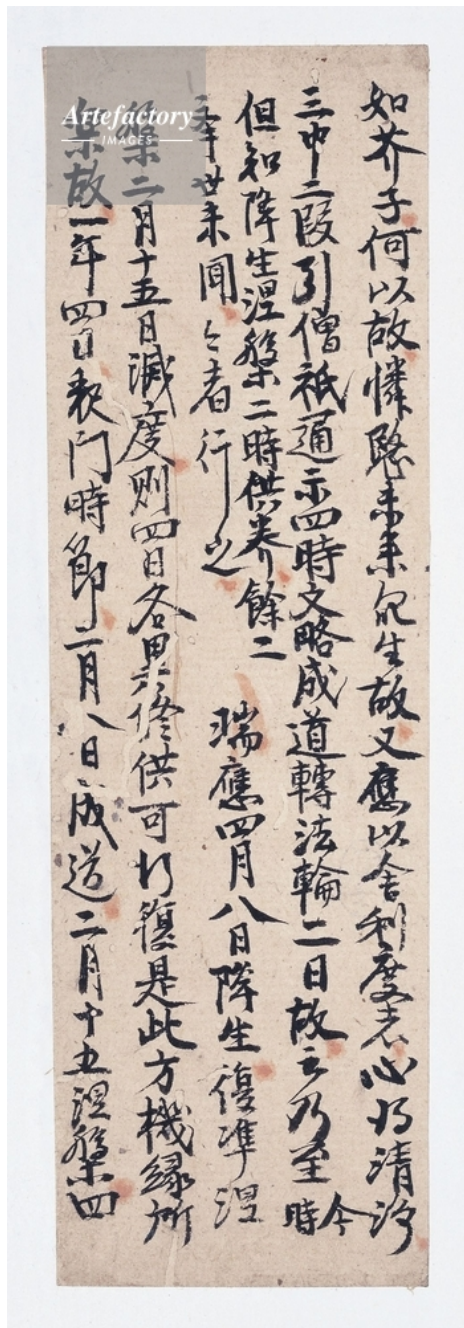 Artefactory
IMAGES
如芥子何以故憐愍未来衆生故又應以舍利度者心得清淨
三中二段引僧祇通示四時文略成道轉法輪二日故云乃至今時
但知降生涅槃二時供養餘二
年世未聞之者行之 瑞應四月八日降生復準涅
槃二月十五日滅度則四日各異修供可行復是此方機緣所
禁故一年四日教門時節二月八日成道二月十五涅槃四